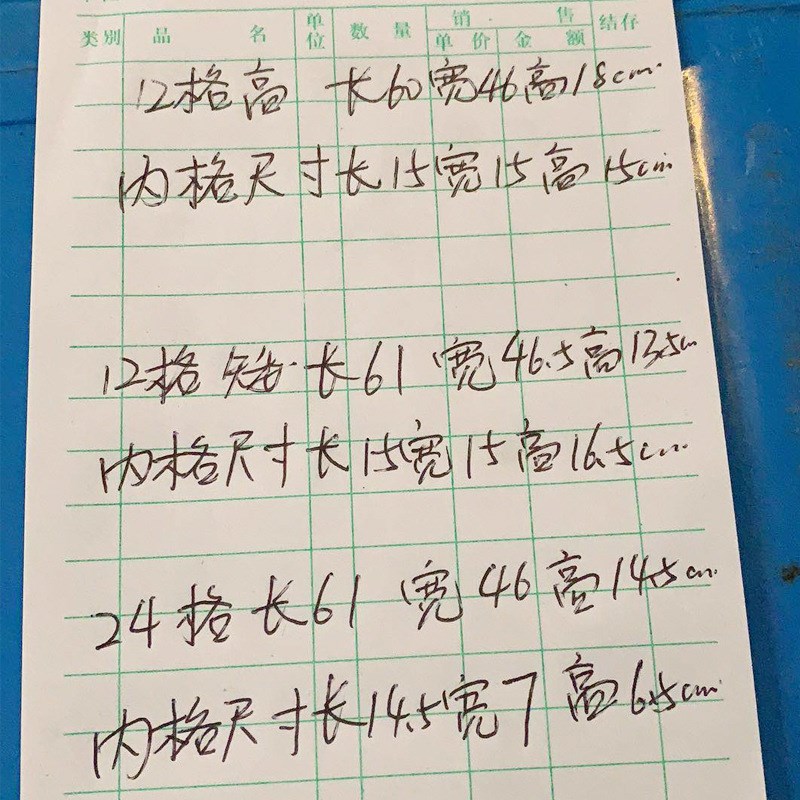 类别 品名 单位 数量 销售 结存
单价 金额
12格高 长60宽46高18cm
内格尺寸长15宽15高15cm
12格矮 长61宽46.5高13.5cm
内格尺寸长15宽15高16.5cm
24格长61宽46高14.5cm
内格尺寸长14.5宽7高6.5cm